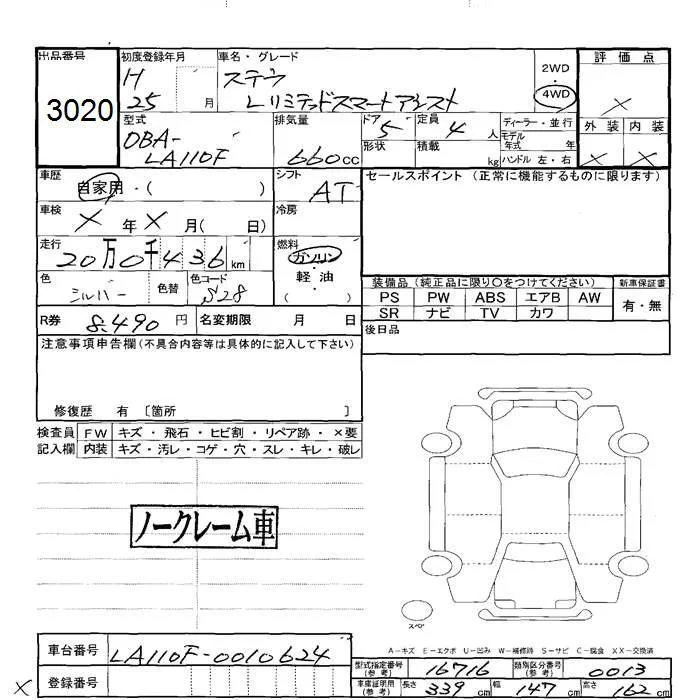 出品番号 初度登録年月 車名・グレード 評価点
3020
H 25 月
ステラ
Lリミテッドスマートアシスト
2WD
4WD
×
外装 内装
× ×
型式 排気量 ドア 5 定員 4 人 ディーラー・並行
DBA-
LA110F
660 cc
形状 積載 kg
モデル年式 年
ハンドル 左・右
車歴 自家用・( )
シフト AT
セールスポイント (正常に機能するものに限ります)
車検 × 年 × 月( 日)
冷房
走行 20万0千436 km
燃料 ガソリン
軽油
( )
色 シルバー 色替 色コード S28
装備品(純正品に限り〇をつけてください) 新車保証書
PS PW ABS エアB AW 有・無
SR ナビ TV カワ
R券 8,490 円 名変期限 月 日
後日品
注意事項申告欄(不具合内容等は具体的に記入して下さい)
修復歴 有 〔箇所 〕
検査員 FW キズ・飛石・ヒビ割・リペア跡・×要
記入欄 内装 キズ・汚レ・コゲ・穴・スレ・キレ・破レ
ノークレーム車
スペア
A-キズ E-エクボ U-凹み W-補修跡 S-サビ C-腐食 XX-交換済
車台番号 LA110F-0010624
型式指定番号(参考) 16716 類別区分番号(参考) 0013
× 登録番号
車庫証明用(参考) 長さ 339 cm 幅 147 cm 高さ 162 cm